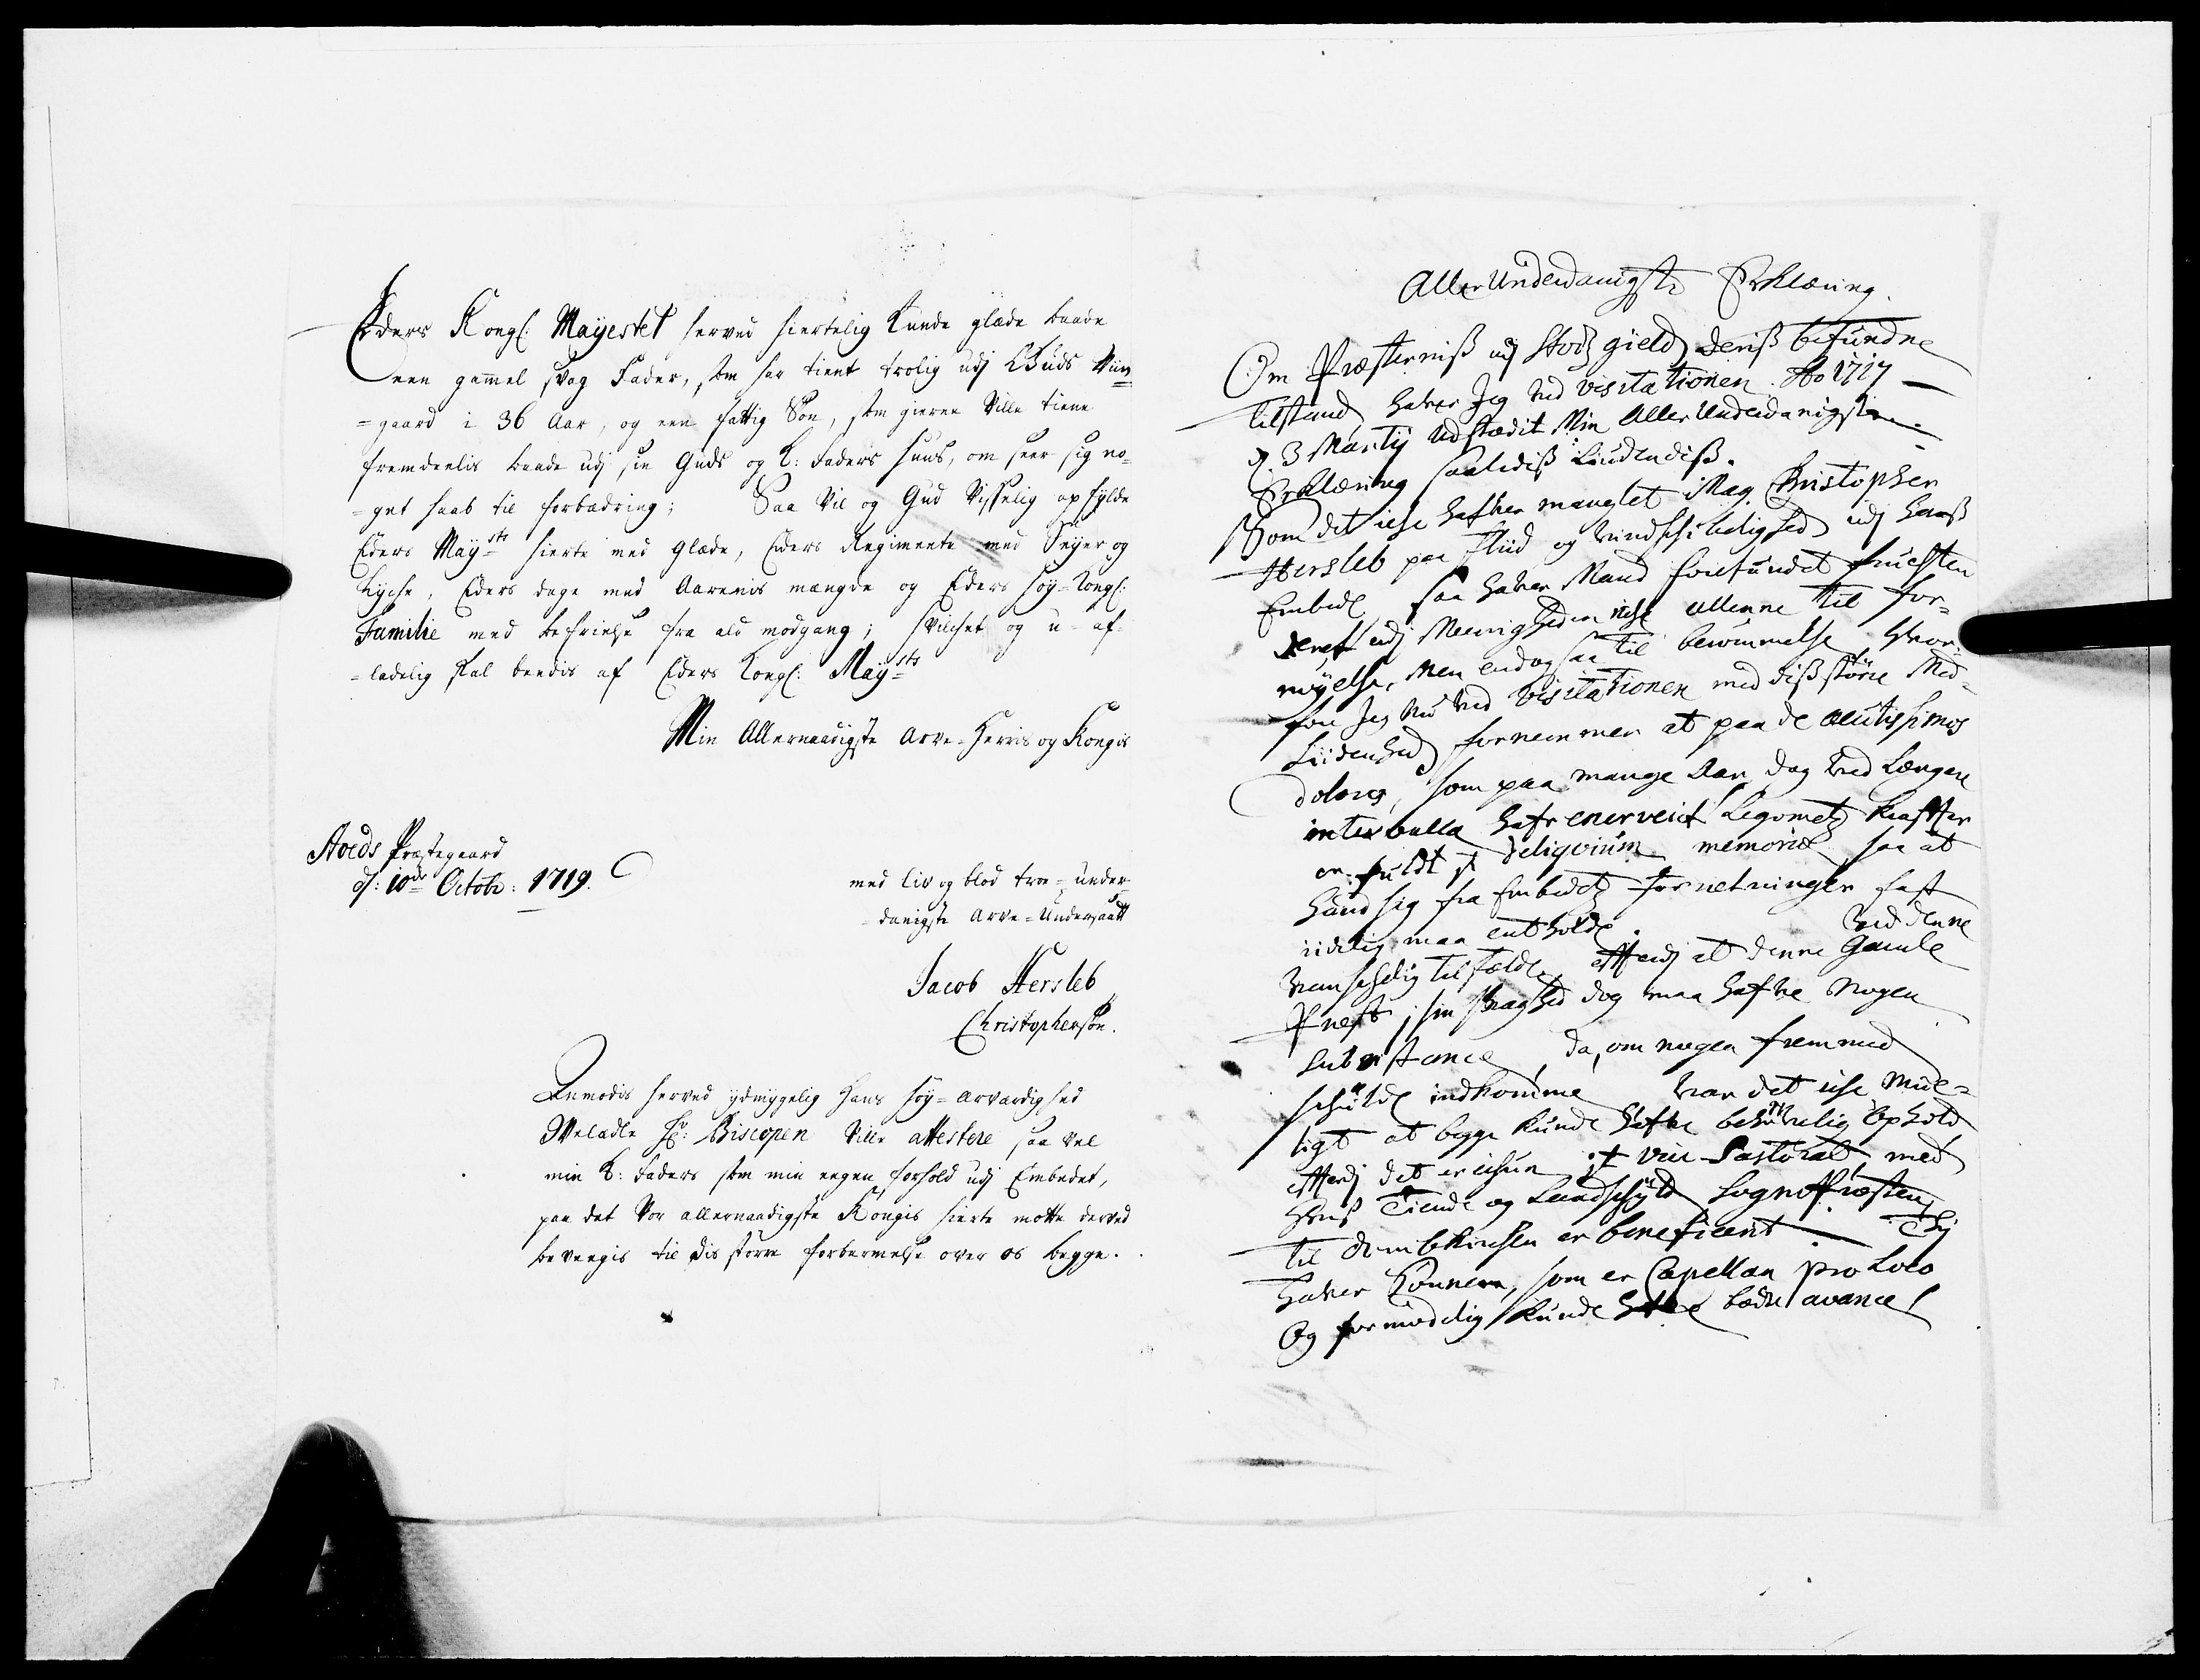 Eders Kongl: Mayestet herved hiertelig kunde glæde baade
een gamel svag Fader, som har tient trolig udj Guds Viin-
=gaard i 36 Aar, og een fattig Søn, som gierne ville tiene
fremdeelis baade udj sin Guds og K: Faders Huus, om seer sig no-
=get haab til forbædring; Saa vil og Gud visselig opfylde
Eders Maysts hierte med glæde, Eders Regimente med Seyer og
Lyche, Eders dage med Aarenis mængde og Eders høy=Kongl:
Familie med befrielse fra ald modgang; hvilchet og u-af-
=ladelig skal beedis af Eders Kongl: Maysts
Min Allernaadigste Arve=Herris og Kongis
Stods Præstegaard
d: 10de Octobr: 1719.
med liv og blod troe=under-
=danigste Arve=Undersaatt
Jacob Hersleb
Christophersøn.
Anmodis herved ydmygelig Hans høy=ærværdighed
Velædle Hr: Biscopen ville attestere saa vel
min K: Faders som min eegen forhold udj Embedet,
paa det vor allernaadigste Kongis hierte motte derved
bevæegis til dis større forbarmelse over os begge.
Aller Underdanigste Erklæring.
Om Præsterniß udj Stods gield deriß befundne
Tilstand haver Jeg ved visitationen Ao 1717
d. 3 Martij udstædit Min Aller Underdanigste
Erklæring saalediß liudendiß.
Som det iche hafver manglet Mag. Christopher
Hersleb paa Fliid og vindschibelighed udj hanß
Embede saa haver Mand forefundet fruchten
deraf udj Meenigheden iche allene til for-
nøyelse, Men endogsaa til berømmelse hvor-
fore Jeg nu ved visitationen med diß større Med-
Liidenhed fornemmer at paa de acutissimos
dolores, som paa mange Aar dog ved Længere
intervalla hafr enerveret Legomets kraffter
er fuldt et deliqvium memoriæ saa at
hand sig fra Embedets forretninger fast
iidelig maa entholde. Ved denne
vanschelig tilfælde, efterdj at denne Gamle
Præst i sin svaghed dog maa hafve Nogen
substance, da, om nogen fremmed
schulde indkomme var det iche Mue-
ligt at begge kunde hafve behøvelig Ophold
efterdj det er ichun it vice-Pastorat, med
hvis Tiende og Landschyld Sognepræsten
til Dombkirchen er beneficeret. Thj
haver Sønnen, som er Capellan pro Loco
Og formodelig kunde hafve bedre avance